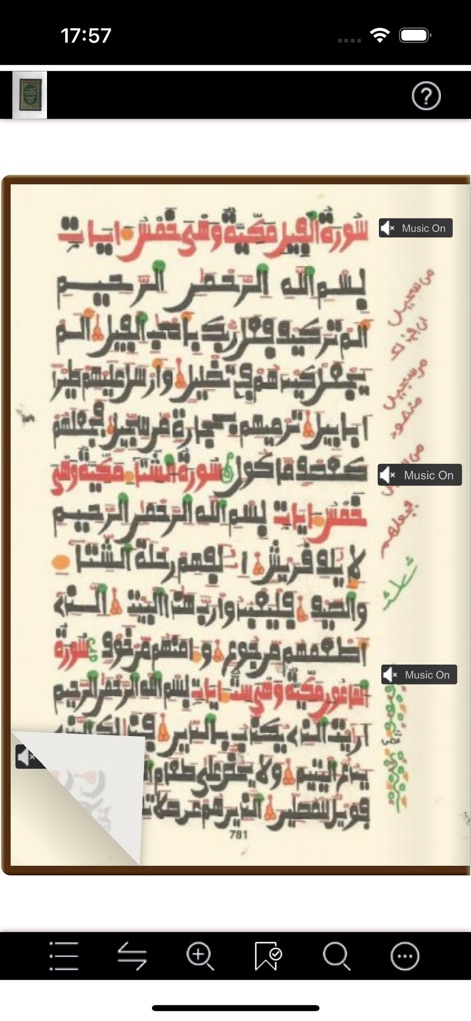 17:57
سورة الفيل مكية وهى خمس ايات
Music On
بسم الله الرحمن الرحيم
الم تر كيف فعل ربك باصحب الفيل الم
يجعل كيدهم في تضليل وارسل عليهم طيرا
ابابيل ترميهم بحجارة من سجيل فجعلهم
كعصف ماكول سورة الشتاء مكية وهى
Music On
خمس ايات بسم الله الرحمن الرحيم
لايلف قريش الفهم رحلة الشتاء
والصيف فليعبدوا رب هذا البيت الذي
اطعمهم من جوع وامنهم من خوف سورة
Music On
الماعون مكية وهي ست ايات بسم الله الرحمن الرحيم
اريت الذي يكذب بالدين فذلك الذي
يدع اليتيم ولا يحض على طعام
فويل للمصلين الذين هم عن
781